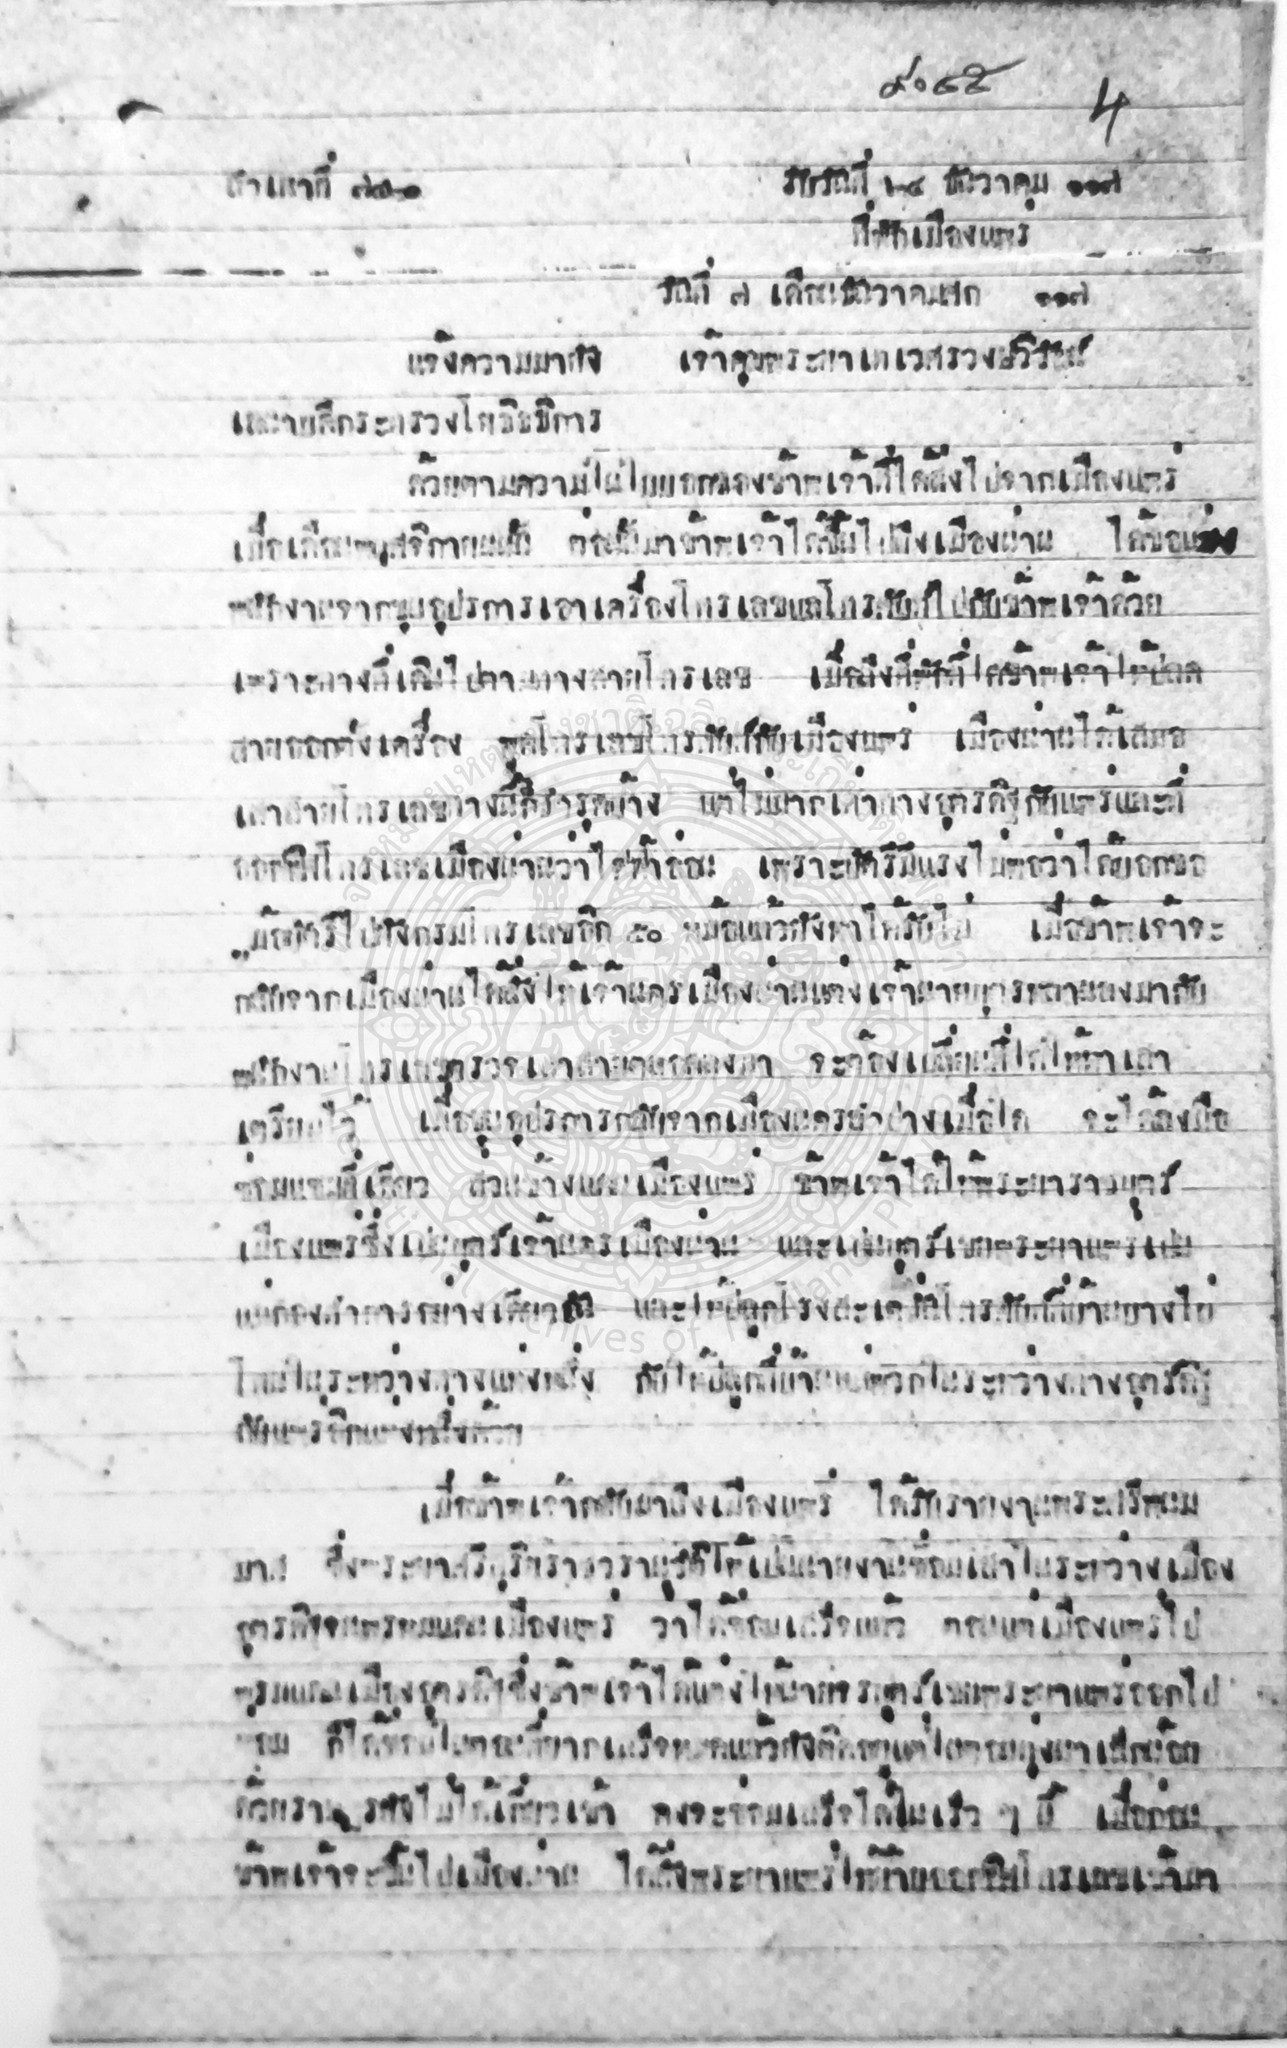 ๙๐๔๕
4
สำเนาที่ ๗๔๐๑ รับวันที่ ๒๔ ธันวาคม ๑๑๗
ที่พักเมืองแพร่
วันที่ ๗ เดือนธันวาคมศก ๑๑๗
แจ้งความมายัง เจ้าคุณพระยาเทเวศรวงษวิวัฒน์
เสนาบดีกระทรวงโยธาธิการ
ด้วยตามความในใบบอกของข้าพเจ้าที่ได้ส่งไปจากเมืองแพร่
เมื่อเดือนพฤศจิกายนนั้น ต่อนั้นมาข้าพเจ้าได้ขึ้นไปถึงเมืองน่าน ได้ขอแบ่ง
พนักงานจากขุนอุปรการเอาเครื่องโทรเลขแลโทรศัพท์ไปกับข้าพเจ้าด้วย
เพราะทางที่เดินไปตามทางสายโทรเลข เมื่อถึงที่พักที่ใดข้าพเจ้าให้ปลด
สายออกต่อเครื่อง พูดโทรเลขโทรศัพท์กับเมืองแพร่ เมืองน่านได้เสมอ
เสาสายโทรเลขทางนี้ก็ชำรุดบ้าง แต่ไม่มากเท่าทางอุตรดิฐกับแพร่และที่
ออฟฟิศโทรเลขเมืองน่านว่าไฟฟ้าอ่อน เพราะแบตรีมีแรงไม่พอว่าได้บอกขอ
หม้อแบตรีไปยังกรมโทรเลขอีก ๕๐ หม้อแล้วยังหาได้รับไม่ เมื่อข้าพเจ้าจะ
กลับจากเมืองน่านได้สั่งให้เจ้านครเมืองน่านแต่งเจ้านายบุตรหลานลงมากับ
พนักงานโทรเลขตรวจเสาสายตลอดลงมา จะต้องเปลี่ยนที่ใดให้หาเสา
เตรียมไว้ เมื่อขุนอุปรการกลับจากเมืองนครลำปางเมื่อใด จะได้ลงมือ
ซ่อมแซมทีเดียว ส่วนข้างแขวงเมืองแพร่ ข้าพเจ้าได้ให้พระยาราชบุตร์
เมืองแพร่ซึ่งเป็นบุตร์เจ้านครเมืองน่าน และเป็นบุตร์เขยพระยาแพร่เป็น
แม่กองทำการอย่างเดียวกัน และให้ปลูกโรงสะเตชั่นโทรศัพท์ที่บ้าน
ในระหว่างทางแห่งหนึ่ง กับให้ปลูกที่บ้าน ในระหว่างทางอุตรดิฐ
กับแพร่อีกแห่งหนึ่งด้วย
เมื่อข้าพเจ้ากลับมาถึงเมืองแพร่ ได้รับรายงานพระ
มาศ ซึ่งพระยาศรีสุริยราชวรานุวัติให้เป็นนายงานซ่อมเสาในระหว่างเมือง
อุตรดิฐจนพรหมแดนเมืองแพร่ ว่าได้ซ่อมเสร็จแล้ว ตอนแต่เมืองแพร่ไป
พรมแดนเมืองอุตรดิฐซึ่งข้าพเจ้าได้แต่งให้ บุตร์เขยพระยาแพร่ออกไป
ซ่อม ก็ได้ซ่อมในตอนที่ยากเสร็จหมดแล้วยังติดอยู่แต่ในตอนทุ่งนาเล็กน้อย
ด้วยราษฎรยังไม่ได้เกี่ยวเข้า คงจะซ่อมเสร็จได้ในเร็ว ๆ นี้ เมื่อก่อน
ข้าพเจ้าจะขึ้นไปเมืองน่าน ได้สั่งพระยาแพร่ให้ย้ายออฟฟิศโทรเลขเข้ามา